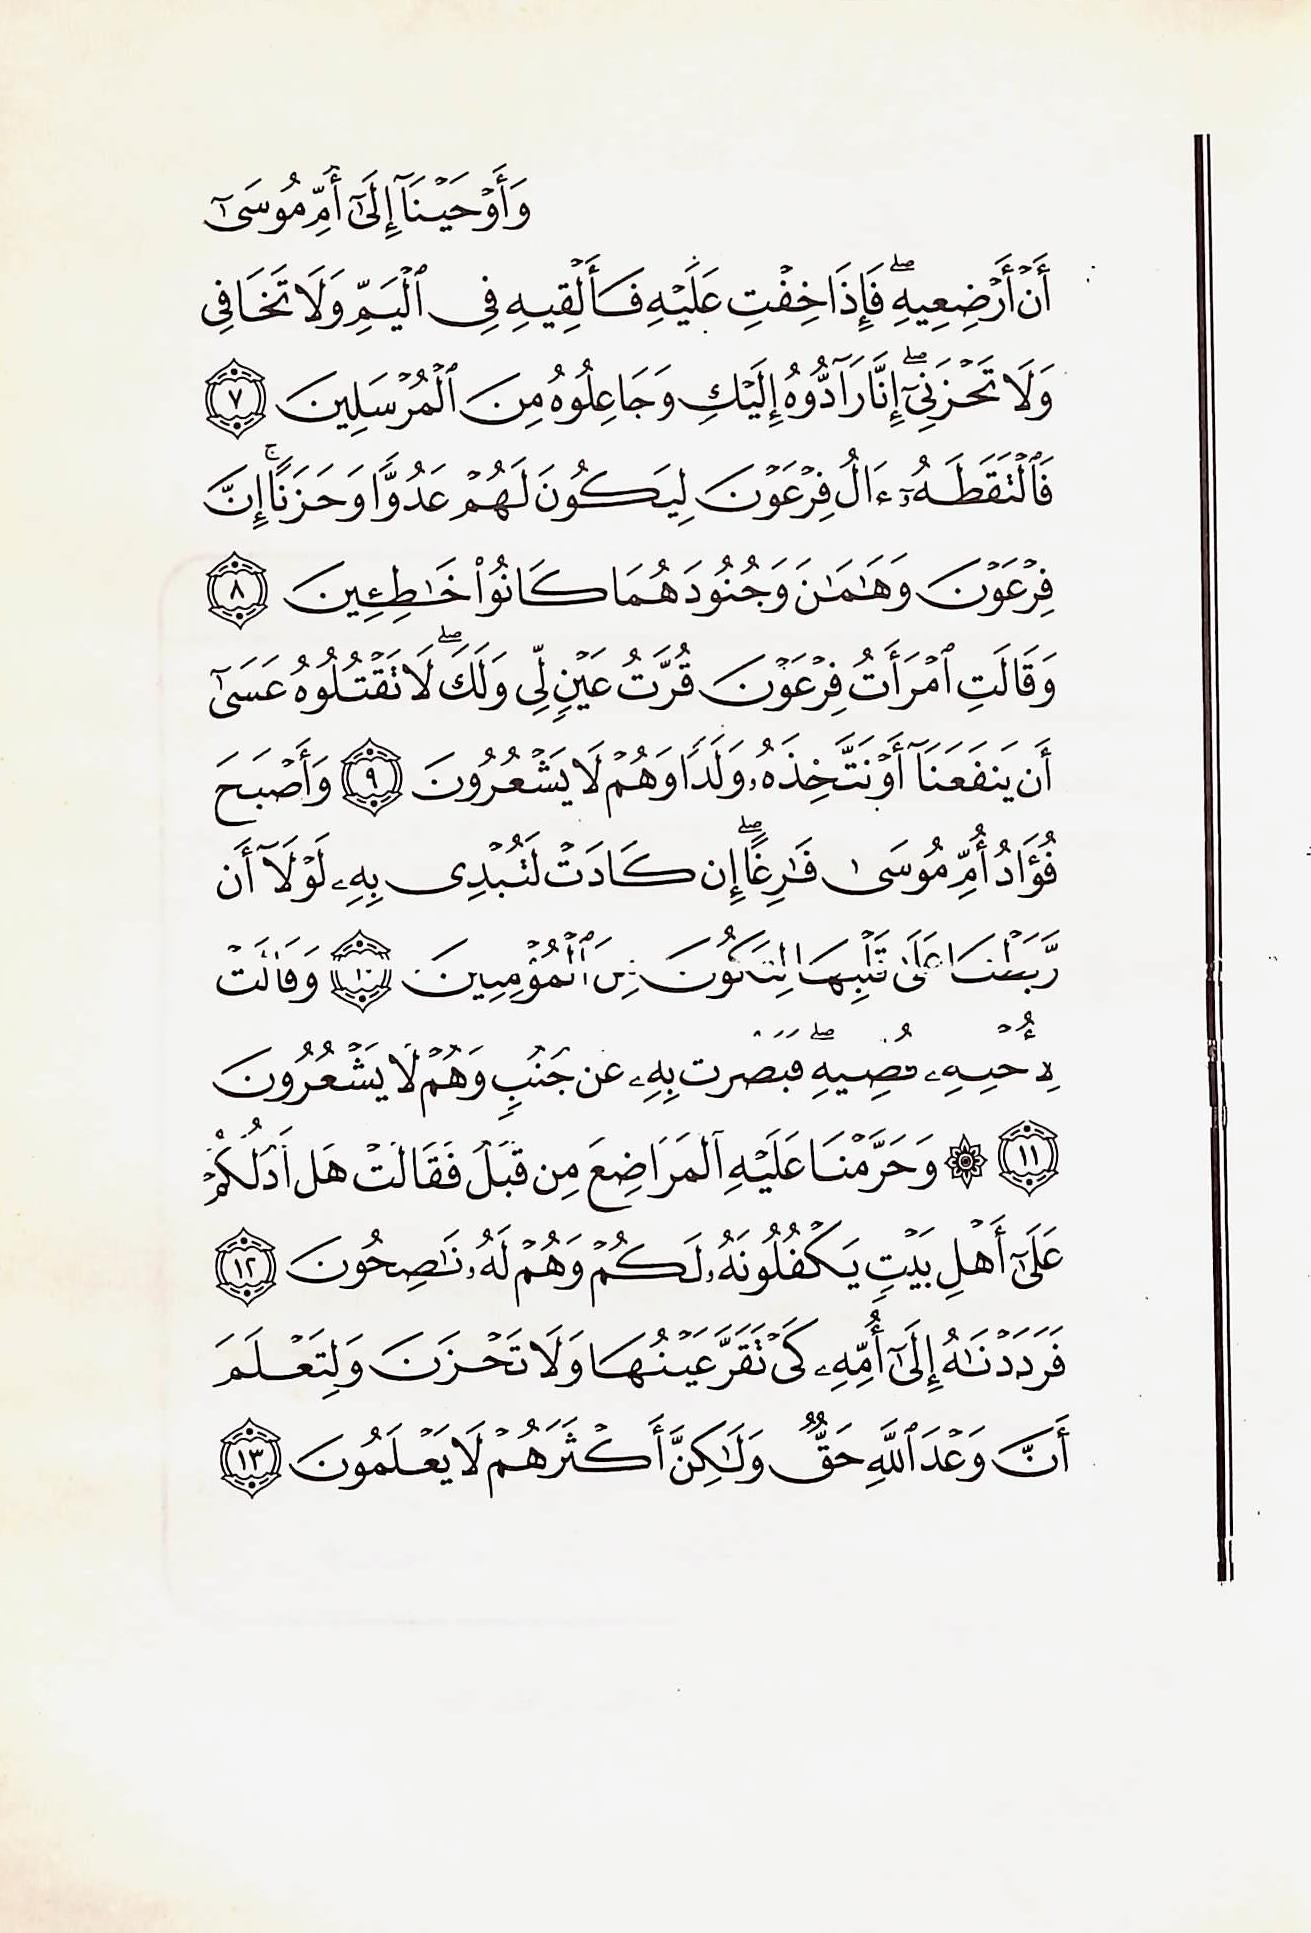 وَأَوْحَيْنَآ إِلَىٰٓ أُمِّ مُوسَىٰٓ
أَنْ أَرْضِعِيهِ ۖ فَإِذَا خِفْتِ عَلَيْهِ فَأَلْقِيهِ فِى ٱلْيَمِّ وَلَا تَخَافِى
وَلَا تَحْزَنِىٓ ۖ إِنَّا رَآدُّوهُ إِلَيْكِ وَجَاعِلُوهُ مِنَ ٱلْمُرْسَلِينَ ٧
فَٱلْتَقَطَهُۥٓ ءَالُ فِرْعَوْنَ لِيَكُونَ لَهُمْ عَدُوًّا وَحَزَنًا ۗ إِنَّ
فِرْعَوْنَ وَهَٰمَٰنَ وَجُنُودَهُمَا كَانُوا۟ خَٰطِـِٔينَ ٨
وَقَالَتِ ٱمْرَأَتُ فِرْعَوْنَ قُرَّتُ عَيْنٍ لِّى وَلَكَ ۖ لَا تَقْتُلُوهُ عَسَىٰٓ
أَن يَنفَعَنَآ أَوْ نَتَّخِذَهُۥ وَلَدًا وَهُمْ لَا يَشْعُرُونَ ٩ وَأَصْبَحَ
فُؤَادُ أُمِّ مُوسَىٰ فَٰرِغًا ۖ إِن كَادَتْ لَتُبْدِى بِهِۦ لَوْلَآ أَن
رَّبَطْنَا عَلَىٰ قَلْبِهَا لِتَكُونَ مِنَ ٱلْمُؤْمِنِينَ ١٠ وَقَالَتْ
لِأُخْتِهِۦ قُصِّيهِ ۖ فَبَصُرَتْ بِهِۦ عَن جُنُبٍ وَهُمْ لَا يَشْعُرُونَ
١١ ۞ وَحَرَّمْنَا عَلَيْهِ ٱلْمَرَاضِعَ مِن قَبْلُ فَقَالَتْ هَلْ أَدُلُّكُمْ
عَلَىٰٓ أَهْلِ بَيْتٍ يَكْفُلُونَهُۥ لَكُمْ وَهُمْ لَهُۥ نَٰصِحُونَ ١٢
فَرَدَدْنَٰهُ إِلَىٰٓ أُمِّهِۦ كَىْ تَقَرَّ عَيْنُهَا وَلَا تَحْزَنَ وَلِتَعْلَمَ
أَنَّ وَعْدَ ٱللَّهِ حَقٌّ وَلَٰكِنَّ أَكْثَرَهُمْ لَا يَعْلَمُونَ ١٣